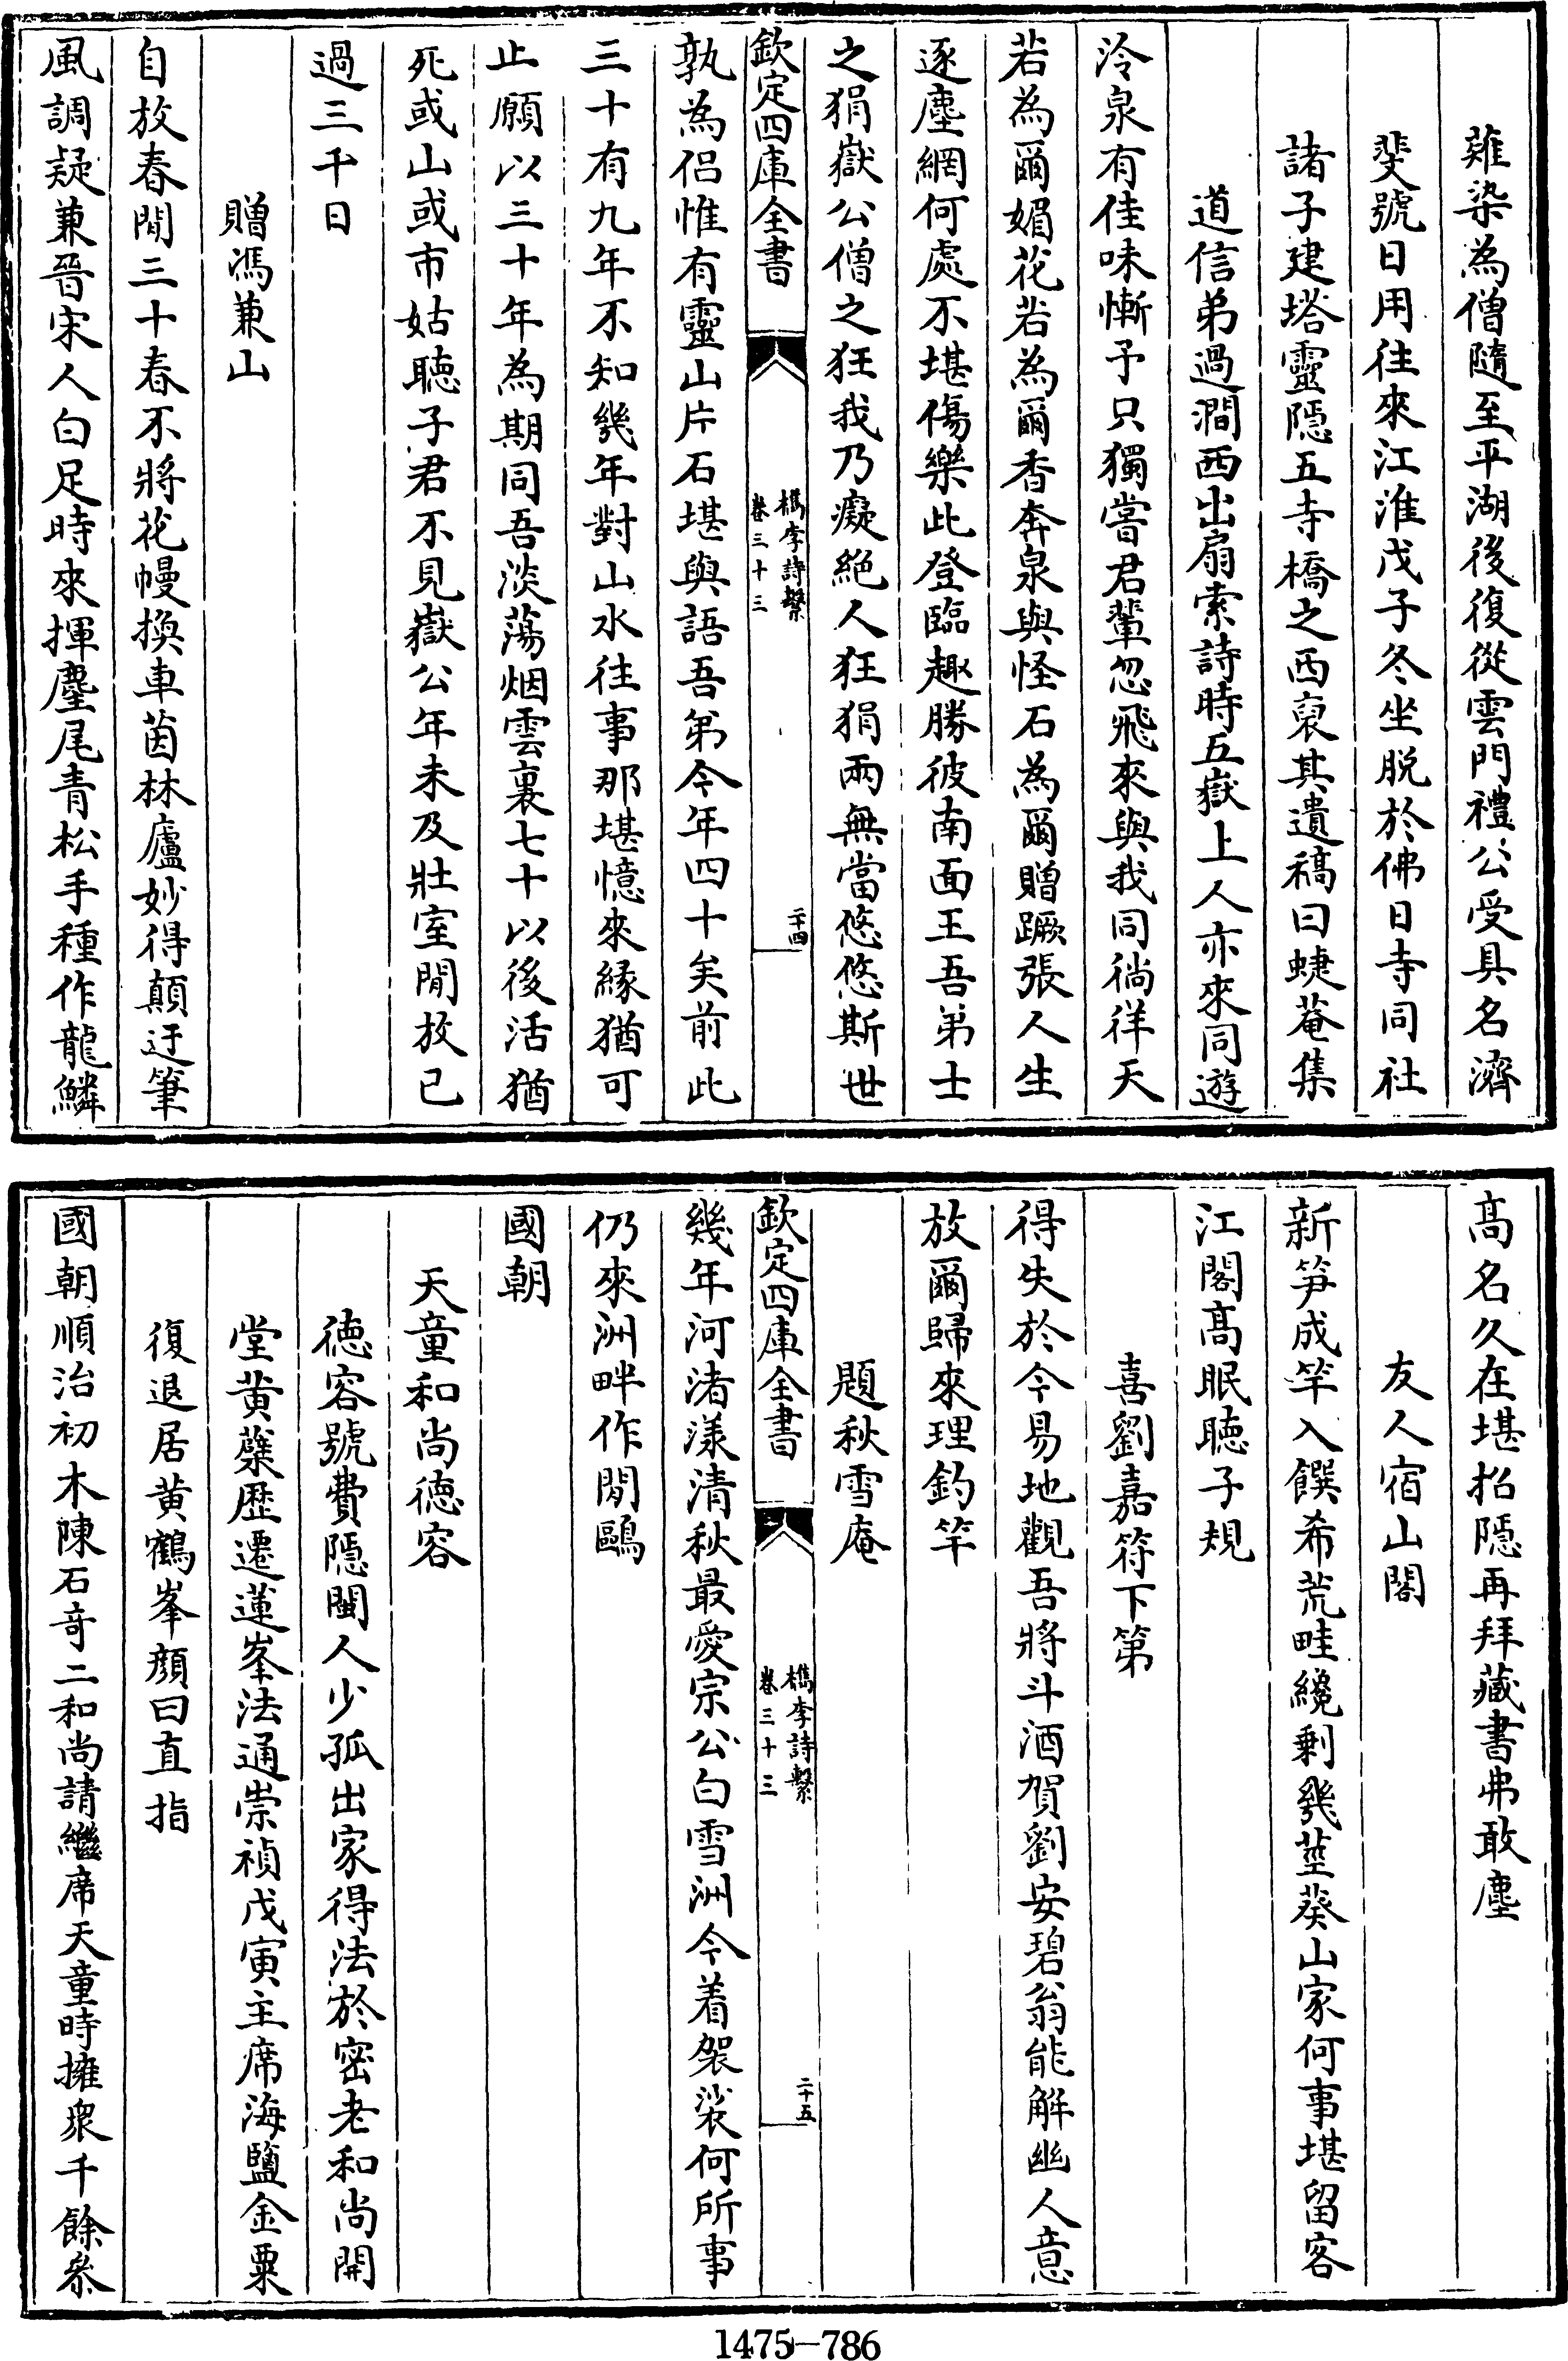 薙染為僧隨至平湖後復從雲門禮公受具名濟
斐號日用往來江淮戊子冬坐脱於佛日寺同社
諸子建塔靈隱五寺橋之西裒其遺稿曰蜨菴集
道信弟過澗西出扇索詩時五嶽上人亦來同遊
泠泉有佳味慚予只獨嘗君輩忽飛來與我同徜徉天
若為爾媚花若為爾香奔泉與怪石為爾贈蹶張人生
逐塵網何處不堪傷樂此登臨趣勝彼南面王吾弟士
之狷嶽公僧之狂我乃癡絕人狂狷兩無當悠悠斯世
欽定四庫全書
檇李詩繫
卷三十三
二十四
孰為侣惟有靈山片石堪與語吾弟今年四十矣前此
三十有九年不知幾年對山水往事那堪憶來緣猶可
止願以三十年為期同吾淡蕩烟雲裏七十以後活猶
死或山或市姑聽子君不見嶽公年未及壯室閒放已
過三千日
贈馮兼山
自放春閒三十春不將花幔換車茵林廬妙得顛迂筆
風調疑兼晉宋人白足時來揮麈尾青松手種作龍鱗
高名久在堪招隱再拜藏書弗敢塵
友人宿山閣
新笋成竿入饌希荒畦纔剩幾莖葵山家何事堪留客
江閣高眠聽子規
喜劉嘉符下第
得失於今易地觀吾將斗酒賀劉安碧翁能解幽人意
放爾歸來理釣竿
題秋雪庵
欽定四庫全書
檇李詩繫
卷三十三
二十五
幾年河渚漾清秋最愛宗公白雪洲今着袈裟何所事
仍來洲畔作閒鷗
國朝
天童和尚德容
德容號費隱閩人少孤出家得法於密老和尚開
堂黄蘗歴遷蓮峯法通崇禎戊寅主席海鹽金粟
復退居黄鶴峯顔曰直指
國朝順治初木陳石竒二和尚請繼席天童時擁衆千餘叅
1475—786